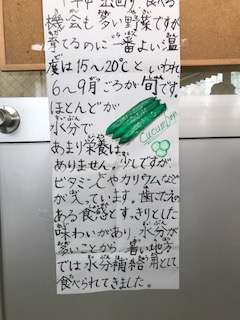 機会も多い野菜ですが
育てるのに一番よい温
度は15～20℃といわれ
6～9月ごろが旬です。
ほとんどが
水分で
あまり栄養は
ありません。少しですが
ビタミンCやカリウムなど
が入っています。歯ごたえの
ある食感とすっきりとした
味わいがあり、水分が
多いことから暑い地方
では水分補給用として
食べられてきました。
Cucumber